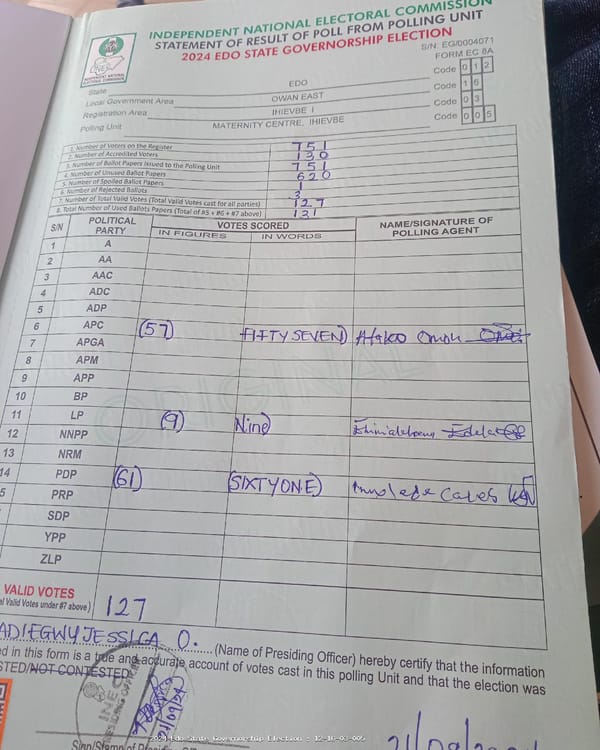 INDEPENDENT NATIONAL ELECTORAL COMMISSION
STATEMENT OF RESULT OF POLL FROM POLLING UNIT
2024 EDO STATE GOVERNORSHIP ELECTION
S/N: EG/0004071
FORM EC 8A
State EDO Code 012
Local Government Area OWAN EAST Code 16
Registration Area IHIEVBE I Code 03
Polling Unit MATERNITY CENTRE, IHIEVBE Code 005
1. Number of Voters on the Register 751
2. Number of Accredited Voters 130
3. Number of Ballot Papers Issued to the Polling Unit 751
4. Number of Unused Ballot Papers 620
5. Number of Spoiled Ballot Papers 1
6. Number of Rejected Ballots 3
7. Number of Total Valid Votes (Total Valid Votes cast for all parties) 127
8. Total Number of Used Ballots Papers (Total of #5 + #6 + #7 above) 131
S/N POLITICAL PARTY VOTES SCORED NAME/SIGNATURE OF POLLING AGENT
IN FIGURES IN WORDS
1 A
2 AA
3 AAC
4 ADC
5 ADP
6 APC (57) FIFTY SEVEN)
7 APGA
8 APM
9 APP
10 BP
11 LP (9) Nine
12 NNPP
13 NRM
14 PDP (61) (SIXTY ONE)
5 PRP
SDP
YPP
ZLP
ORIGINAL
VALID VOTES
al Valid Votes under #7 above) 127
ADIEGWU JESSICA O. (Name of Presiding Officer) hereby certify that the information
ed in this form is a true and accurate account of votes cast in this polling Unit and that the election was
STED/NOT CONTESTED
INEC
21/09/24
21/09/20
2024 Edo State Governorship Election : 12-16-03-005